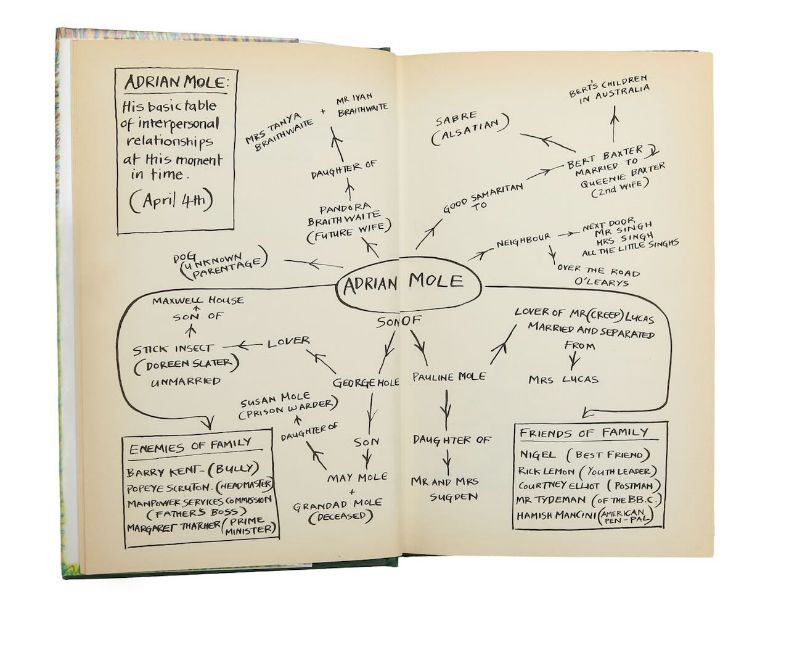 ADRIAN MOLE:
His basic table
of interpersonal
relationships
at this moment
in time.
(April 4th)
MRS TANYA
BRAITHWAITE
+
MR IVAN
BRAITHWAITE
DAUGHTER OF
PANDORA
BRAITHWAITE
(FUTURE WIFE)
DOG
(UNKNOWN
PARENTAGE)
SABRE
(ALSATIAN)
BERT'S CHILDREN
IN AUSTRALIA
GOOD SAMARITAN
TO
BERT BAXTER
MARRIED TO
QUEENIE BAXTER
(2nd WIFE)
NEIGHBOUR
NEXT DOOR
MR SINGH
MRS SINGH
ALL THE LITTLE SINGHS
OVER THE ROAD
O'LEARYS
ADRIAN MOLE
SON OF
MAXWELL HOUSE
SON OF
STICK INSECT
(DOREEN SLATER)
UNMARRIED
LOVER
GEORGE MOLE
PAULINE MOLE
LOVER OF MR (CREEP) LUCAS
MARRIED AND SEPARATED
FROM
MRS LUCAS
SUSAN MOLE
(PRISON WARDER)
DAUGHTER OF
SON
MAY MOLE
+
GRANDAD MOLE
(DECEASED)
DAUGHTER OF
MR AND MRS
SUGDEN
ENEMIES OF FAMILY
BARRY KENT - (BULLY)
POPEYE SCRUTON. (HEADMASTER)
MANPOWER SERVICES COMMISSION
(FATHER'S BOSS)
MARGARET THATCHER (PRIME
MINISTER)
FRIENDS OF FAMILY
NIGEL (BEST FRIEND)
RICK LEMON (YOUTH LEADER)
COURTNEY ELLIOT (POSTMAN)
MR TYDEMAN (OF THE BB.C.)
HAMISH MANCINI (AMERICAN
PEN-PAL)